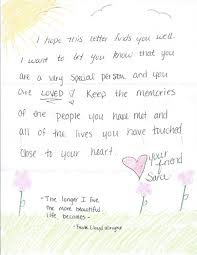 I hope this letter finds you well.
I want to let you know that you
are a very special person and you
are LOVED! Keep the memories
of the people you have met and
all of the lives you have touched
close to your heart.
Your
friend
Sara
- The longer I live
the more beautiful
life becomes -
- Frank Lloyd Wright